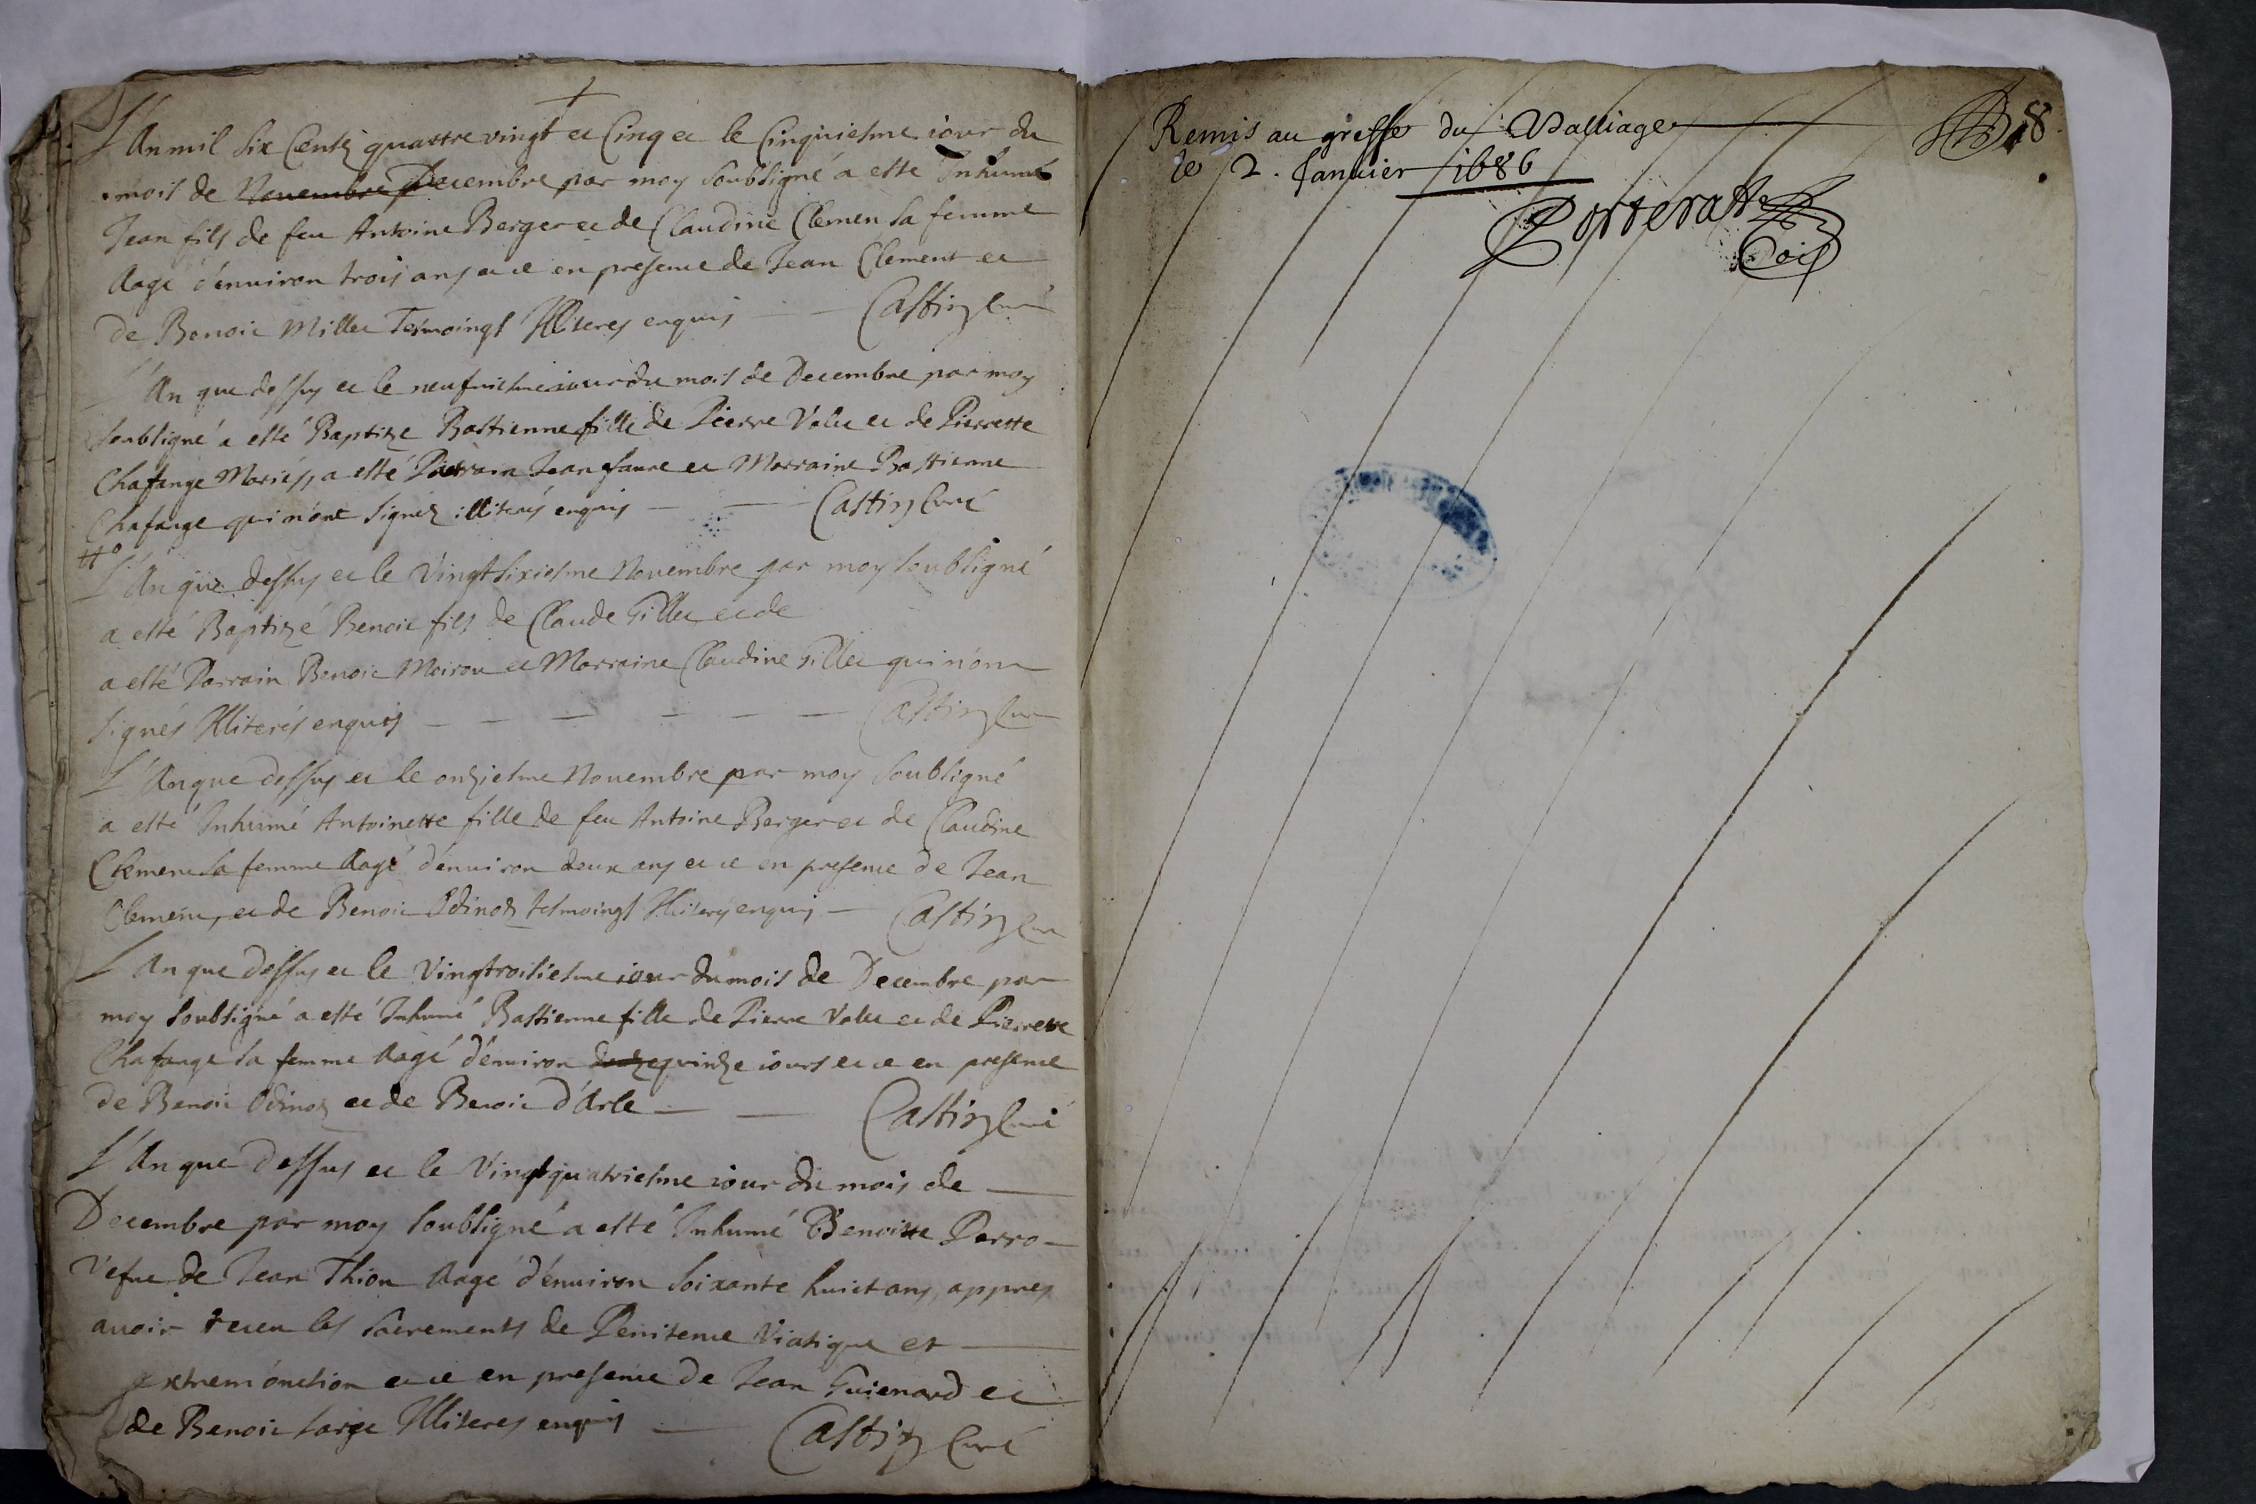 L'An mil six Centz quattre vingt et Cinq et le Cinquiesme iour du
mois de Nouembre Decembre par moy soubsigné a esté Inhumé
Jean fils de feu Antoine Berger et de Claudine Clemen sa femme
Aagé d'enuiron trois ans et ce en presence de Jean Clement et
de Benoit Millet Tesmoingt Illiteres enquis Castin Curé
L'An que dessus et le neufuiesme iour du mois de Decembre par moy
soubsigné a esté Baptizé Bastienne fille de Pierre Valu et de Pierrette
Chafange Mariés, a esté Parrain Jean faure et Marraine Bastienne
Chafange qui n'ont signez illiterés enquis Castin Curé
L'An que dessus et le Vingtsixiesme Nouembre par moy soubsigné
a esté Baptizé Benoit fils de Claude Gillet et de
a esté Parrain Benoit Moirou et Marraine Claudine Gillet qui n'ont
signés Illiterés enquis Castin Curé
L'An que dessus et le onziesme Nouembre par moy soubsigné
a esté Inhumé Antoinette fille de feu Antoine Berger et de Claudine
Clement sa femme Aagé d'enuiron deux ans et ce en presence de Jean
Clement, et de Benoit Odinoz tesmoingt Illiterés enquis Castin Curé
L'An que dessus et le Vingtroisiesme iour du mois de Decembre par
moy soubsigné a esté Inhumé Bastienne fille de Pierre Valu et de Pierrette
Chafange sa femme Aagé d'enuiron quinze iours et ce en presence
de Benoit Odinoz et de Benoit d'Arle Castin Curé
L'An que dessus et le Vingtquatriesme iour du mois de
Decembre par moy soubsigné a esté Inhumé Benoitte Perro
Vefue de Jean Thion Aagé d'enuiron soixante huict ans, appres
auoir receu les sacrements de Penitence Viatique et
extremonction et ce en presence de Jean Guienard et
de Benoit large Illiteres enquis Castin Curé
Remis au greffe du Balliage
le 2. Januier 1686
Porterat